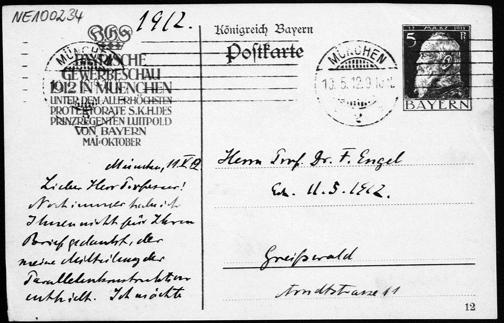 NE100234
1912.
BAYRISCHE
GEWERBESCHAU
1912 IN MUENCHEN
UNTER DEM ALLERHÖCHSTEN
PROTEKTORATE S.K.H.DES
PRINZREGENTEN LUITPOLD
VON BAYERN
MAI-OKTOBER
Königreich Bayern
Postkarte
MÜNCHEN
MÜNCHEN
5 P
BAYERN
München,
Lieber Herr Professor!
Noch immer habe ich
Ihnen nicht für Ihren
Brief gedankt, der
meine Mitteilung der
Parallelenkonstruktion
enthielt. Ich möchte
Herrn Prof. Dr. F. Engel
11.5.1912.
Greifswald
Arndtstrasse 11
12